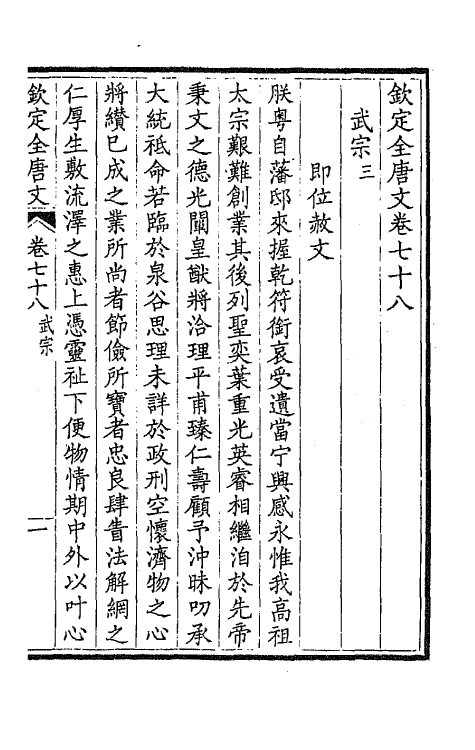 欽定全唐文卷七十八
武宗三
即位赦文
朕粤自藩邸來握乾符銜哀受遺當宁興感永惟我高祖
太宗艱難創業其後列聖奕葉重光英睿相繼洎於先帝
秉文之德光闡皇猷將洽理平甫臻仁壽顧予沖昧叨承
大統祗命若臨於泉谷思理未詳於政刑空懷濟物之心
將纉已成之業所尚者節儉所寶者忠良肆眚法解網之
仁厚生敷流澤之惠上憑靈祉下便物情期中外以叶心
欽定全唐文 卷七十八 武宗 一